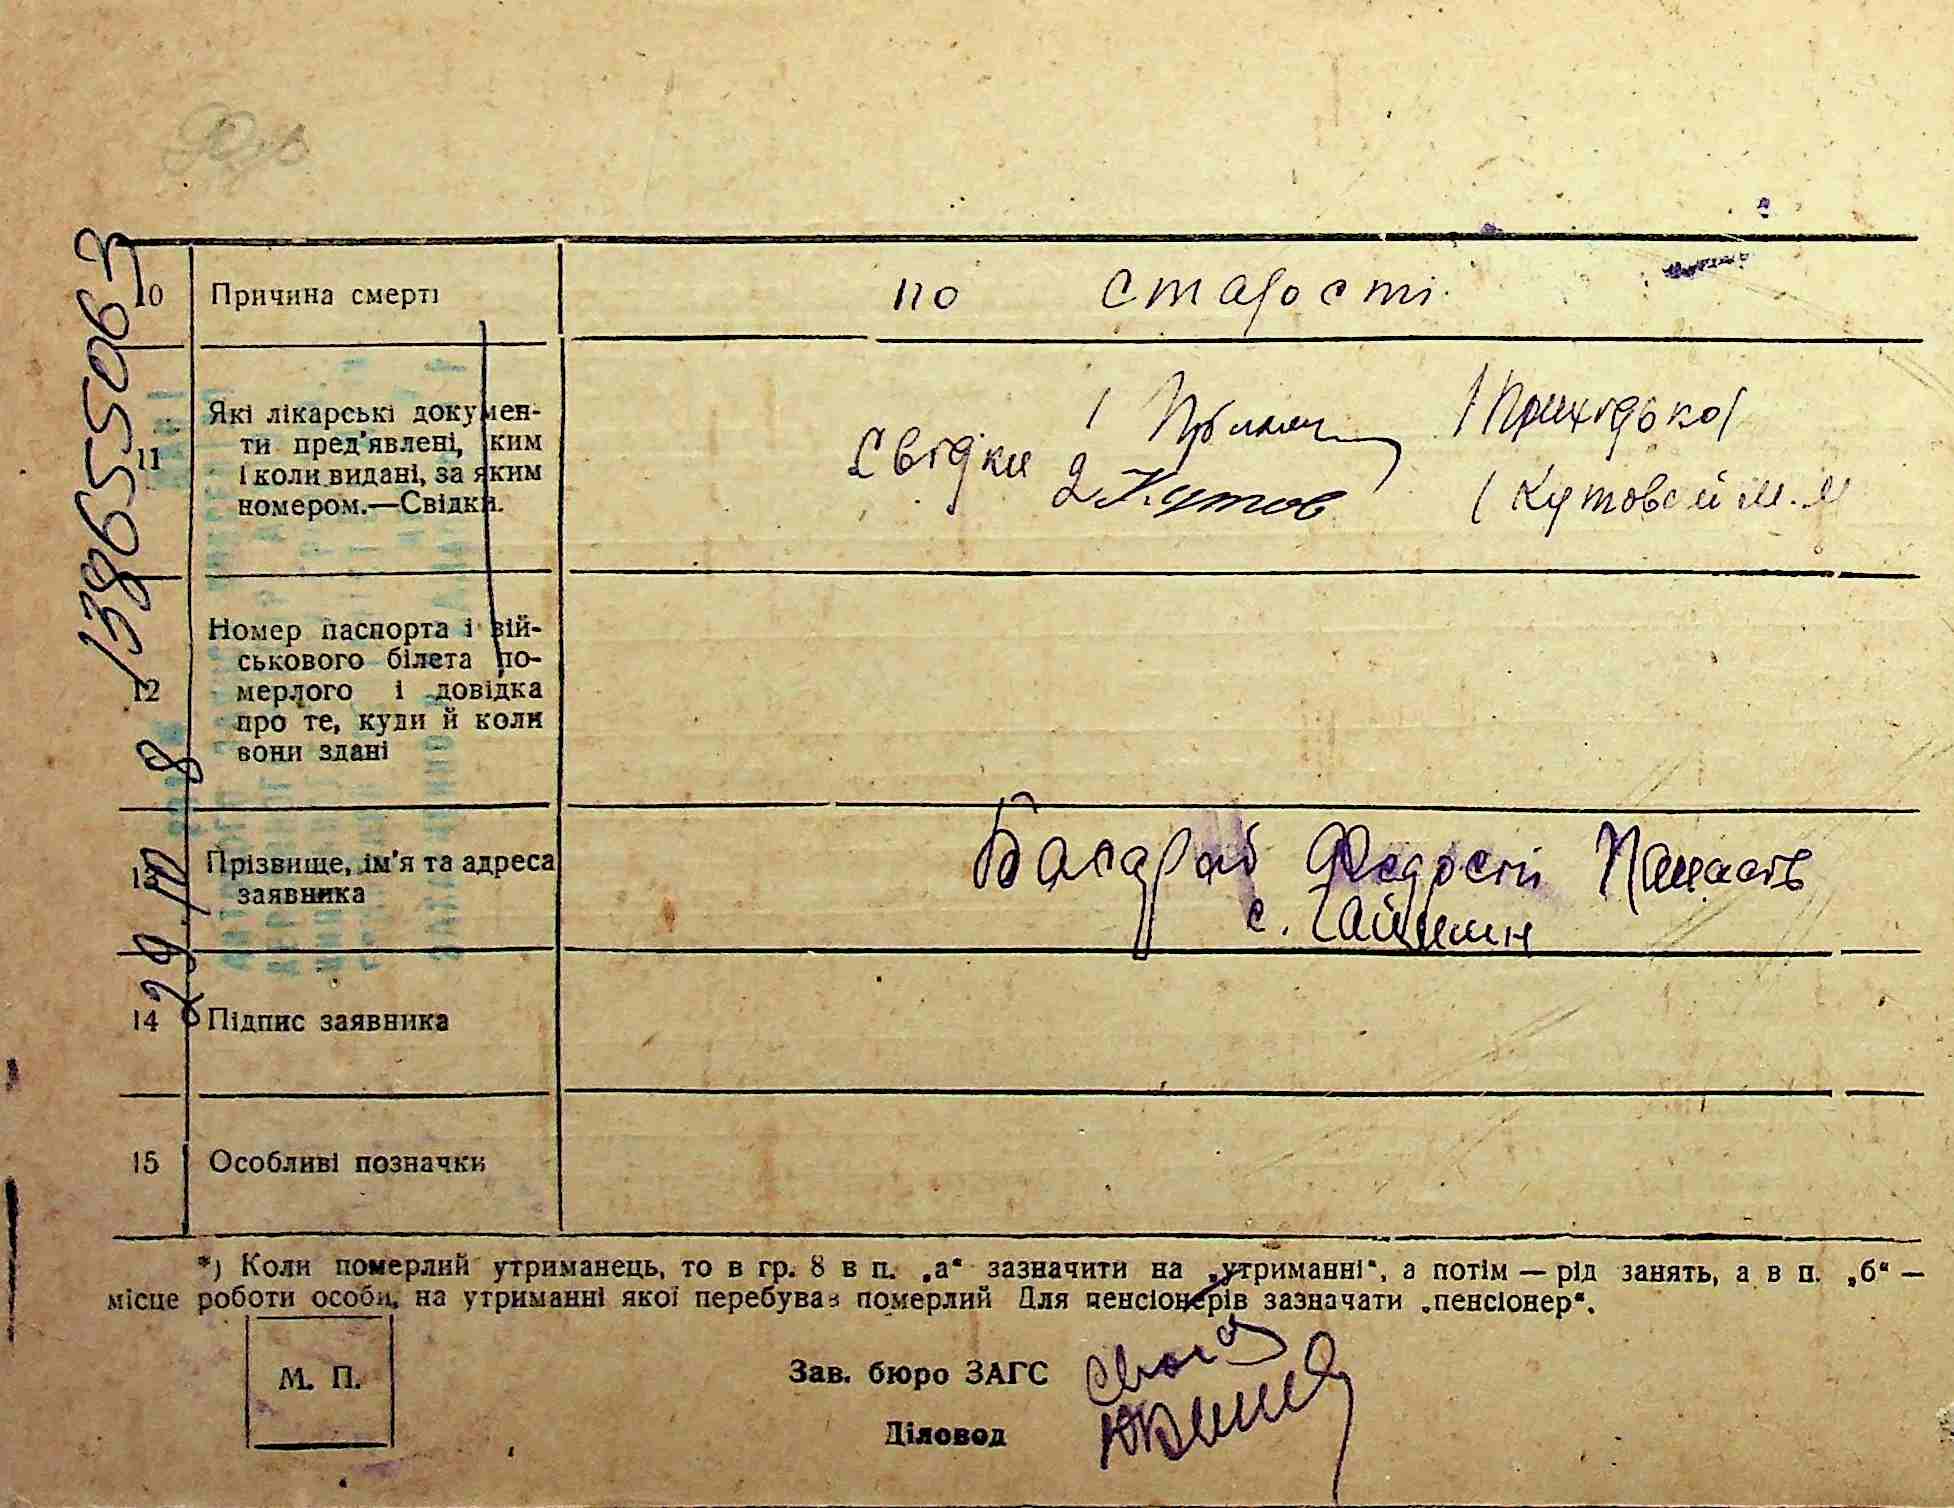 10 Причина смерті по старості
11 Які лікарські докумен-
ти пред'явлені, ким
і коли видані, за яким
номером.—Свідки.
Свідки 1 /Приходько/
2 Кутов /Кутовой М. М
12 Номер паспорта і вій-
ськового білета по-
мерлого і довідка
про те, куди й коли
вони здані
13 Прізвище, ім'я та адреса
заявника
Федосій Панасів
с. Гайшин
14 Підпис заявника
15 Особливі позначки
*) Коли померлий утриманець, то в гр. 8 в п. „а“ зазначити на „утриманні“, а потім — рід занять, а в п. „б“ —
місце роботи особи, на утриманні якої перебував померлий Для пенсіонерів зазначати „пенсіонер“.
М. П.
Зав. бюро ЗАГС
Діловод
1386555063